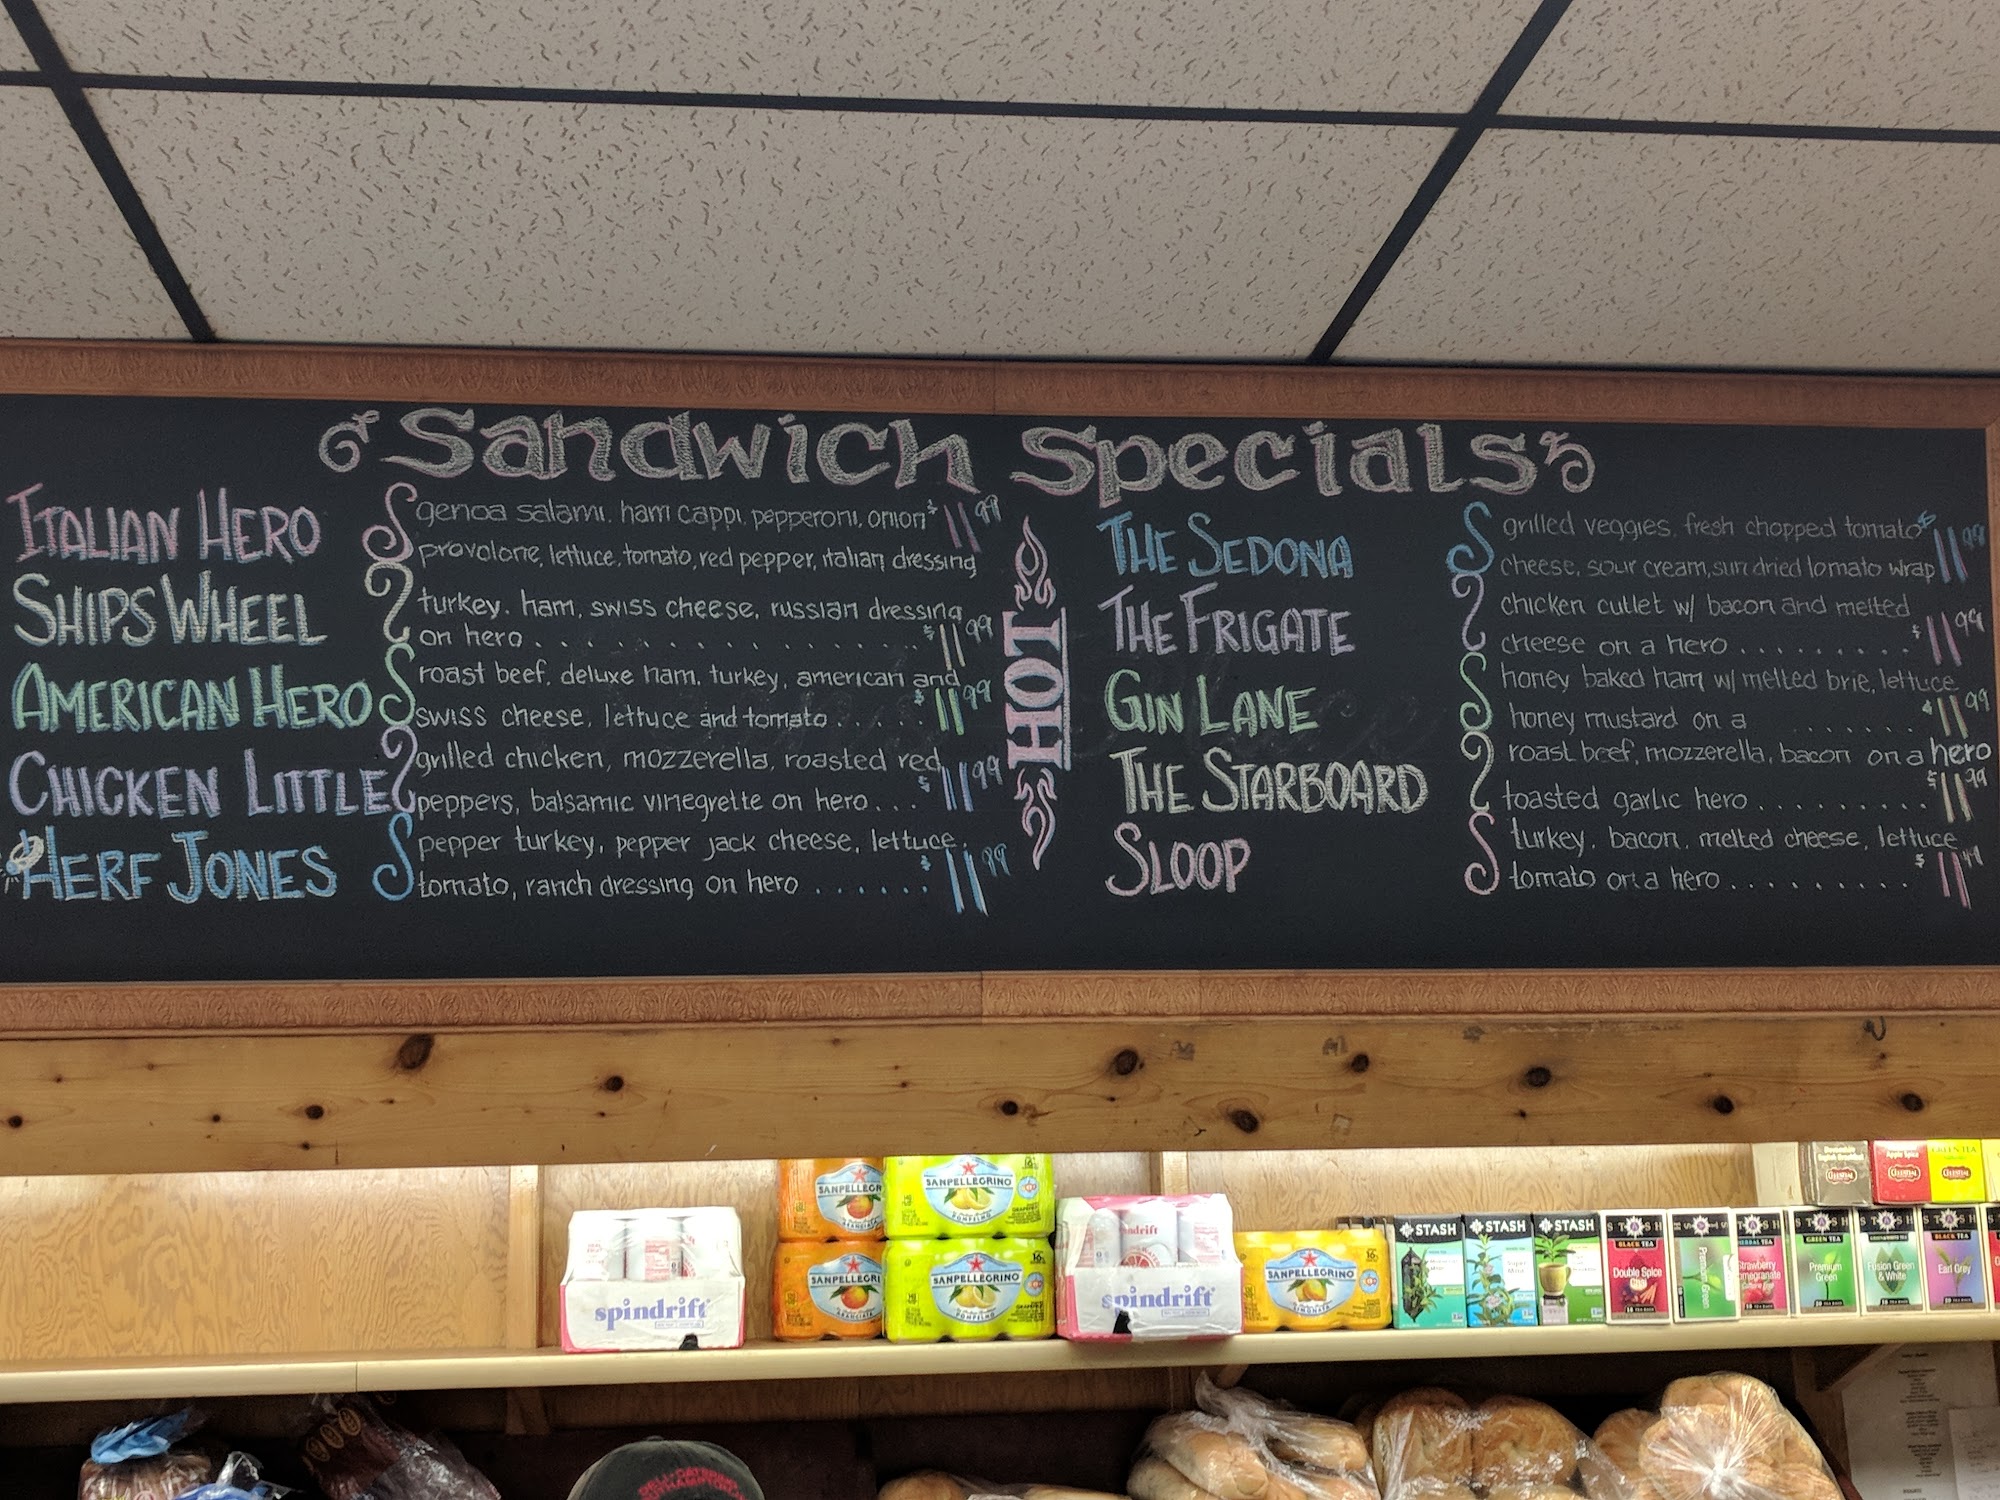 Sandwich Specials
ITALIAN HERO
genoa salami, ham cappi, pepperoni, onion $11.99
provolone, lettuce, tomato, red pepper, italian dressing
SHIPS WHEEL
turkey, ham, swiss cheese, russian dressing
on hero . . . . . . . . . . . . . . . $11.99
AMERICAN HERO
roast beef, deluxe ham, turkey, american and
swiss cheese, lettuce and tomato . . . . . . $11.99
CHICKEN LITTLE
grilled chicken, mozzerella, roasted red
peppers, balsamic vinegrette on hero . . . $11.99
HERF JONES
pepper turkey, pepper jack cheese, lettuce,
tomato, ranch dressing on hero . . . . . . $11.99
HOT
THE SEDONA
grilled veggies, fresh chopped tomato $11.99
cheese, sour cream, sun dried tomato wrap
THE FRIGATE
chicken cutlet w/ bacon and melted
cheese on a hero . . . . . . . . . $11.99
GIN LANE
honey baked ham w/ melted brie, lettuce
honey mustard on a . . . . . . . $11.99
THE STARBOARD
roast beef, mozzerella, bacon on a hero
toasted garlic hero . . . . . . . . . $11.99
SLOOP
turkey, bacon, melted cheese, lettuce
tomato on a hero . . . . . . . . . $11.99
SANPELLEGRINO
SANPELLEGRINO
POMPELMO
spindrift
SANPELLEGRI
ARANCIATA
SANPELLEGRINO
POMPELMO
spindrift
SANPELLEGRINO
LIMONATA
Apple Spice
CELESTIAL
GREEN TEA
CELESTIAL
STASH
STASH
Super Mint
STASH
STASH
BLACK TEA
Double Spice
Chai
STASH
Premium Green
STASH
HERBAL TEA
Strawberry
Pomegranate
STASH
GREEN TEA
Premium
Green
STASH
Fusion Green
& White
STASH
BLACK TEA
Earl Grey
DELI-CATERING